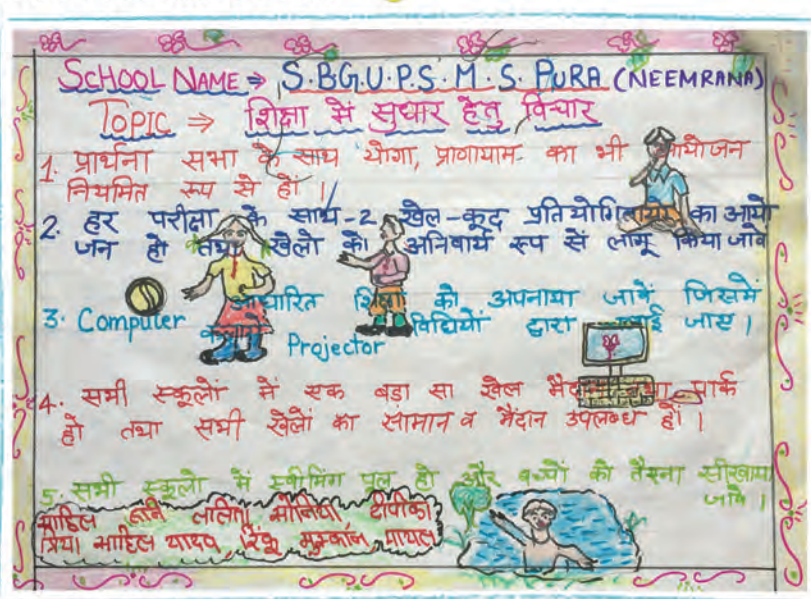 SCHOOL NAME ⇒ S.B.G.U.P.S. M.S. PURA (NEEMRANA)
TOPIC ⇒ शिक्षा में सुधार हेतु विचार
1. प्रार्थना सभा के साथ योगा, प्राणायाम का भी आयोजन
नियमित रूप से हों ।
2. हर परीक्षा के साथ-2 खेल-कूद प्रतियोगिताओं का आयो
जन हो तथा खेलो को अनिवार्य रूप सें लागू किया जावे
3. Computer आधारित शिक्षा को अपनाया जावें जिसमें
Projector विधियों द्वारा जाए ।
4. सभी स्कूलों में एक बडा सा खेल मैदान तथा पार्क
हो तथा सभी खेलों का सामान व मैदान उपलब्ध हों ।
5. सभी स्कूलो में स्वीमिंग पुल हो और बच्चों को तैरना सीखाया
जावे ।
साहिल ललिता मोनिया दीपीका
प्रिया साहिल यादव रिंकू मुस्कान पायल